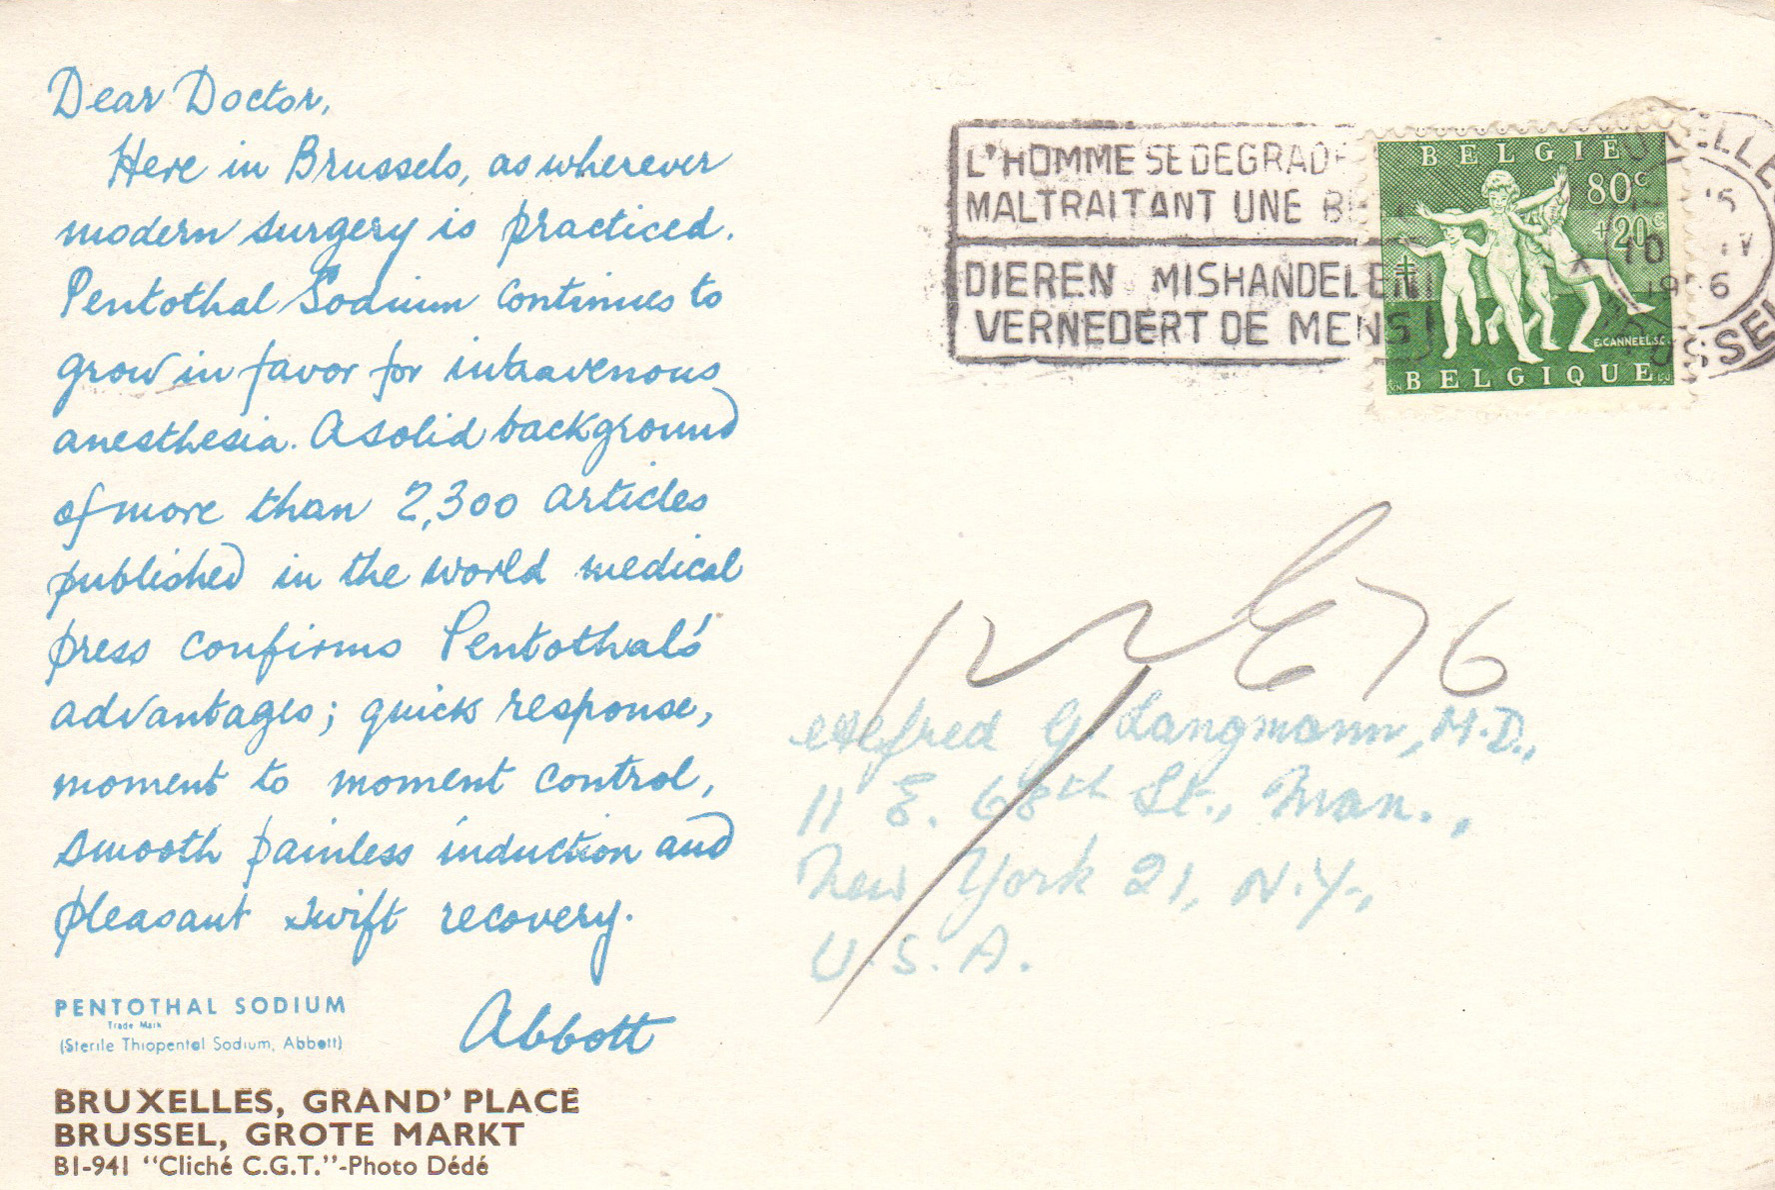 Dear Doctor,
Here in Brussels, as wherever
modern surgery is practiced.
Pentothal Sodium continues to
grow in favor for intravenous
anesthesia. A solid background
of more than 2,300 articles
published in the world medical
press confirms Pentothal's
advantages; quick response,
moment to moment control,
smooth painless induction and
pleasant swift recovery.
Abbott
PENTOTHAL SODIUM
Trade Mark
(Sterile Thiopental Sodium, Abbott)
BRUXELLES, GRAND' PLACE
BRUSSEL, GROTE MARKT
BI-941 "Cliché C.G.T."-Photo Dédé
L'HOMME SE DEGRADE
MALTRAITANT UNE
DIEREN MISHANDELEN
VERNEDERT DE MENS!
BELGIË
80c
+20c
E.CANNEEL.SC.
BELGIQUE
10 IV
1956
Alfred G. Langmann, M.D.,
11 E. 68th St., Man.,
New York 21, N.Y.,
U.S.A.